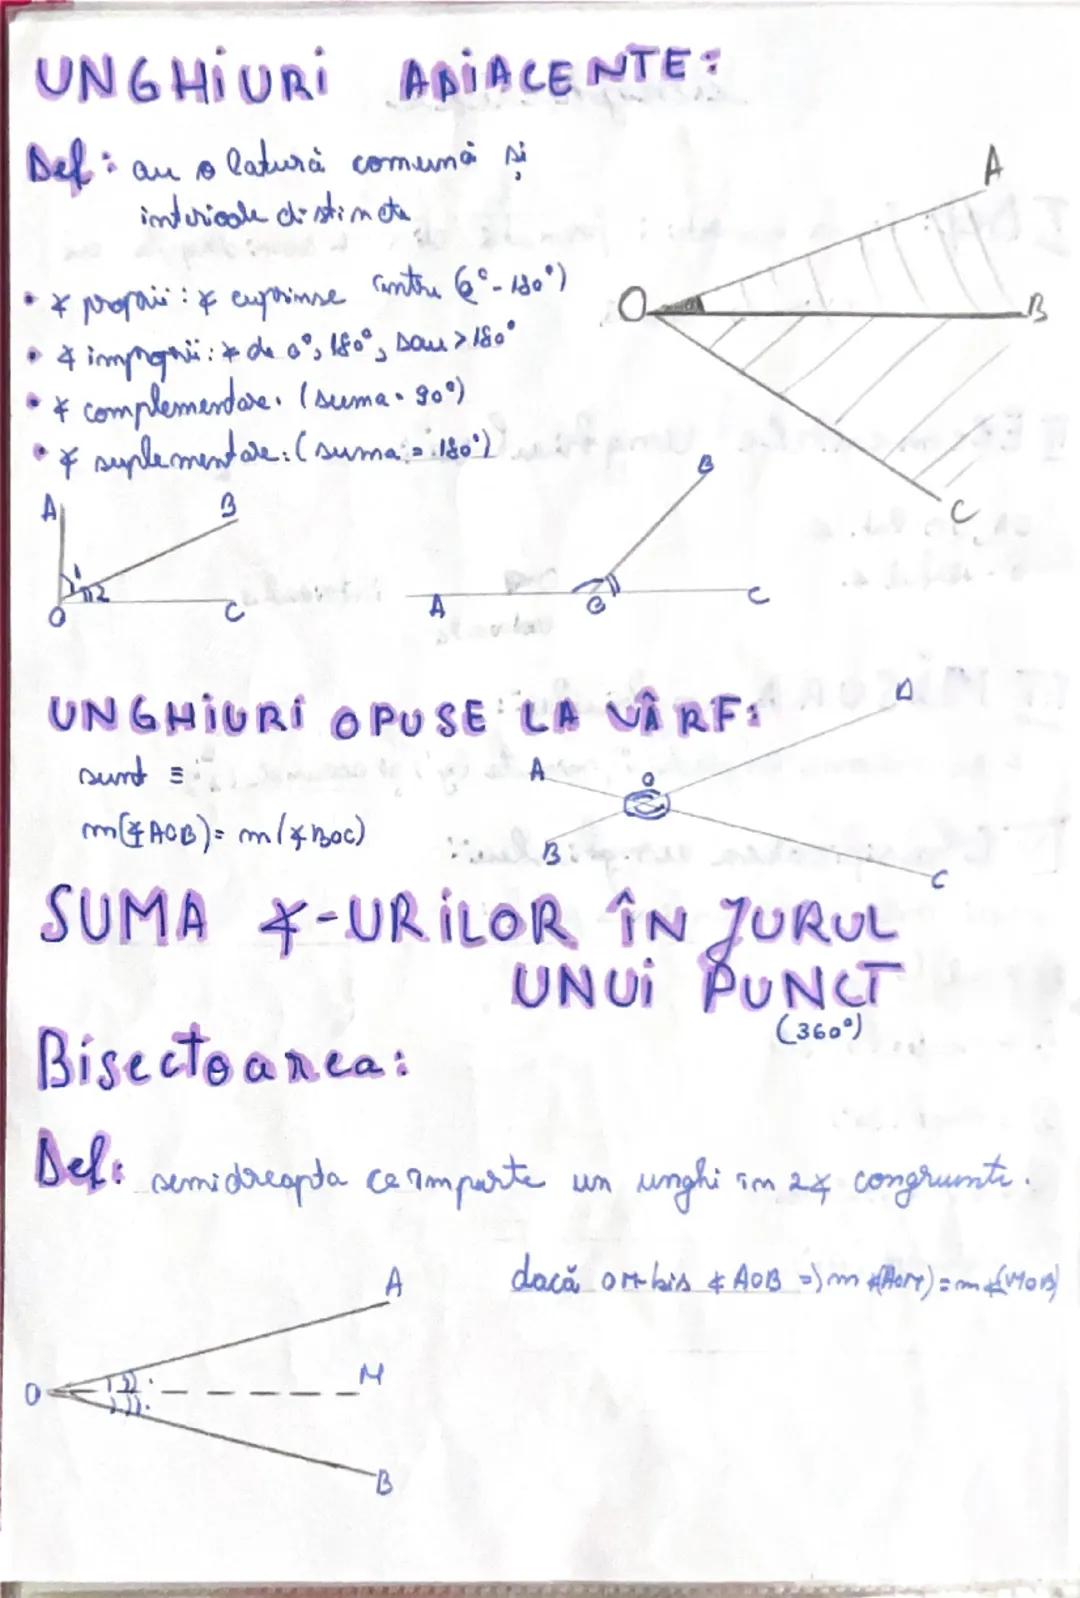 UNGHIURI ADIACENTE:
Def: au o latură comună și
interioale distincte
A
O
B
C
• ∢ proprii: ∢ cuprinse între (0° - 180°)
• ∢ improprii: ∢ de 0°, 180°, sau > 180°
• ∢ complementare. (suma = 90°)
• ∢ suplementare: (suma = 180°)
A B
1
2
O C
B
A O C
UNGHIURI OPUSE LA VÂRF:
sunt ≡
m(∢AOB) = m(∢BOC)
A O D
B C
SUMA ∢-URILOR ÎN JURUL
UNUI PUNCT
(360°)
Bisectoarea:
Def: semidreapta ce împarte un unghi în 2∢ congruente.
dacă OM-bis ∢ AOB => m ∢(AOM) = m ∢(MOB)
A
O M
B